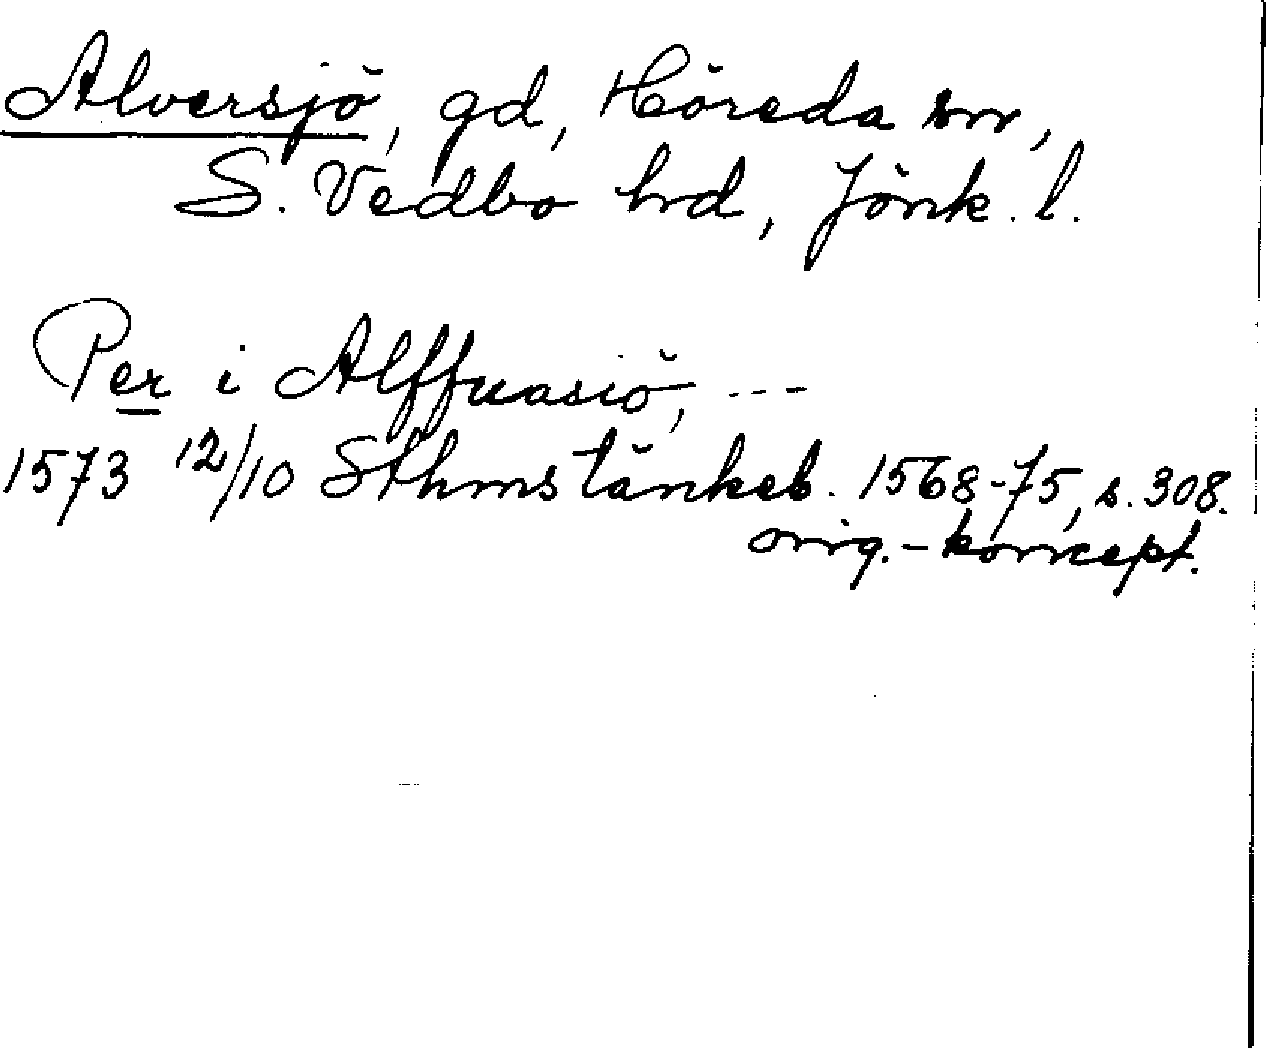 Alversjö, gd, Höreda sn,
S. Vedbo hd, Jönk. l.
Per i Alffuasiö, ---
1573 12/10 Sthms tänkeb. 1568-75, s. 308.
orig.-koncept.